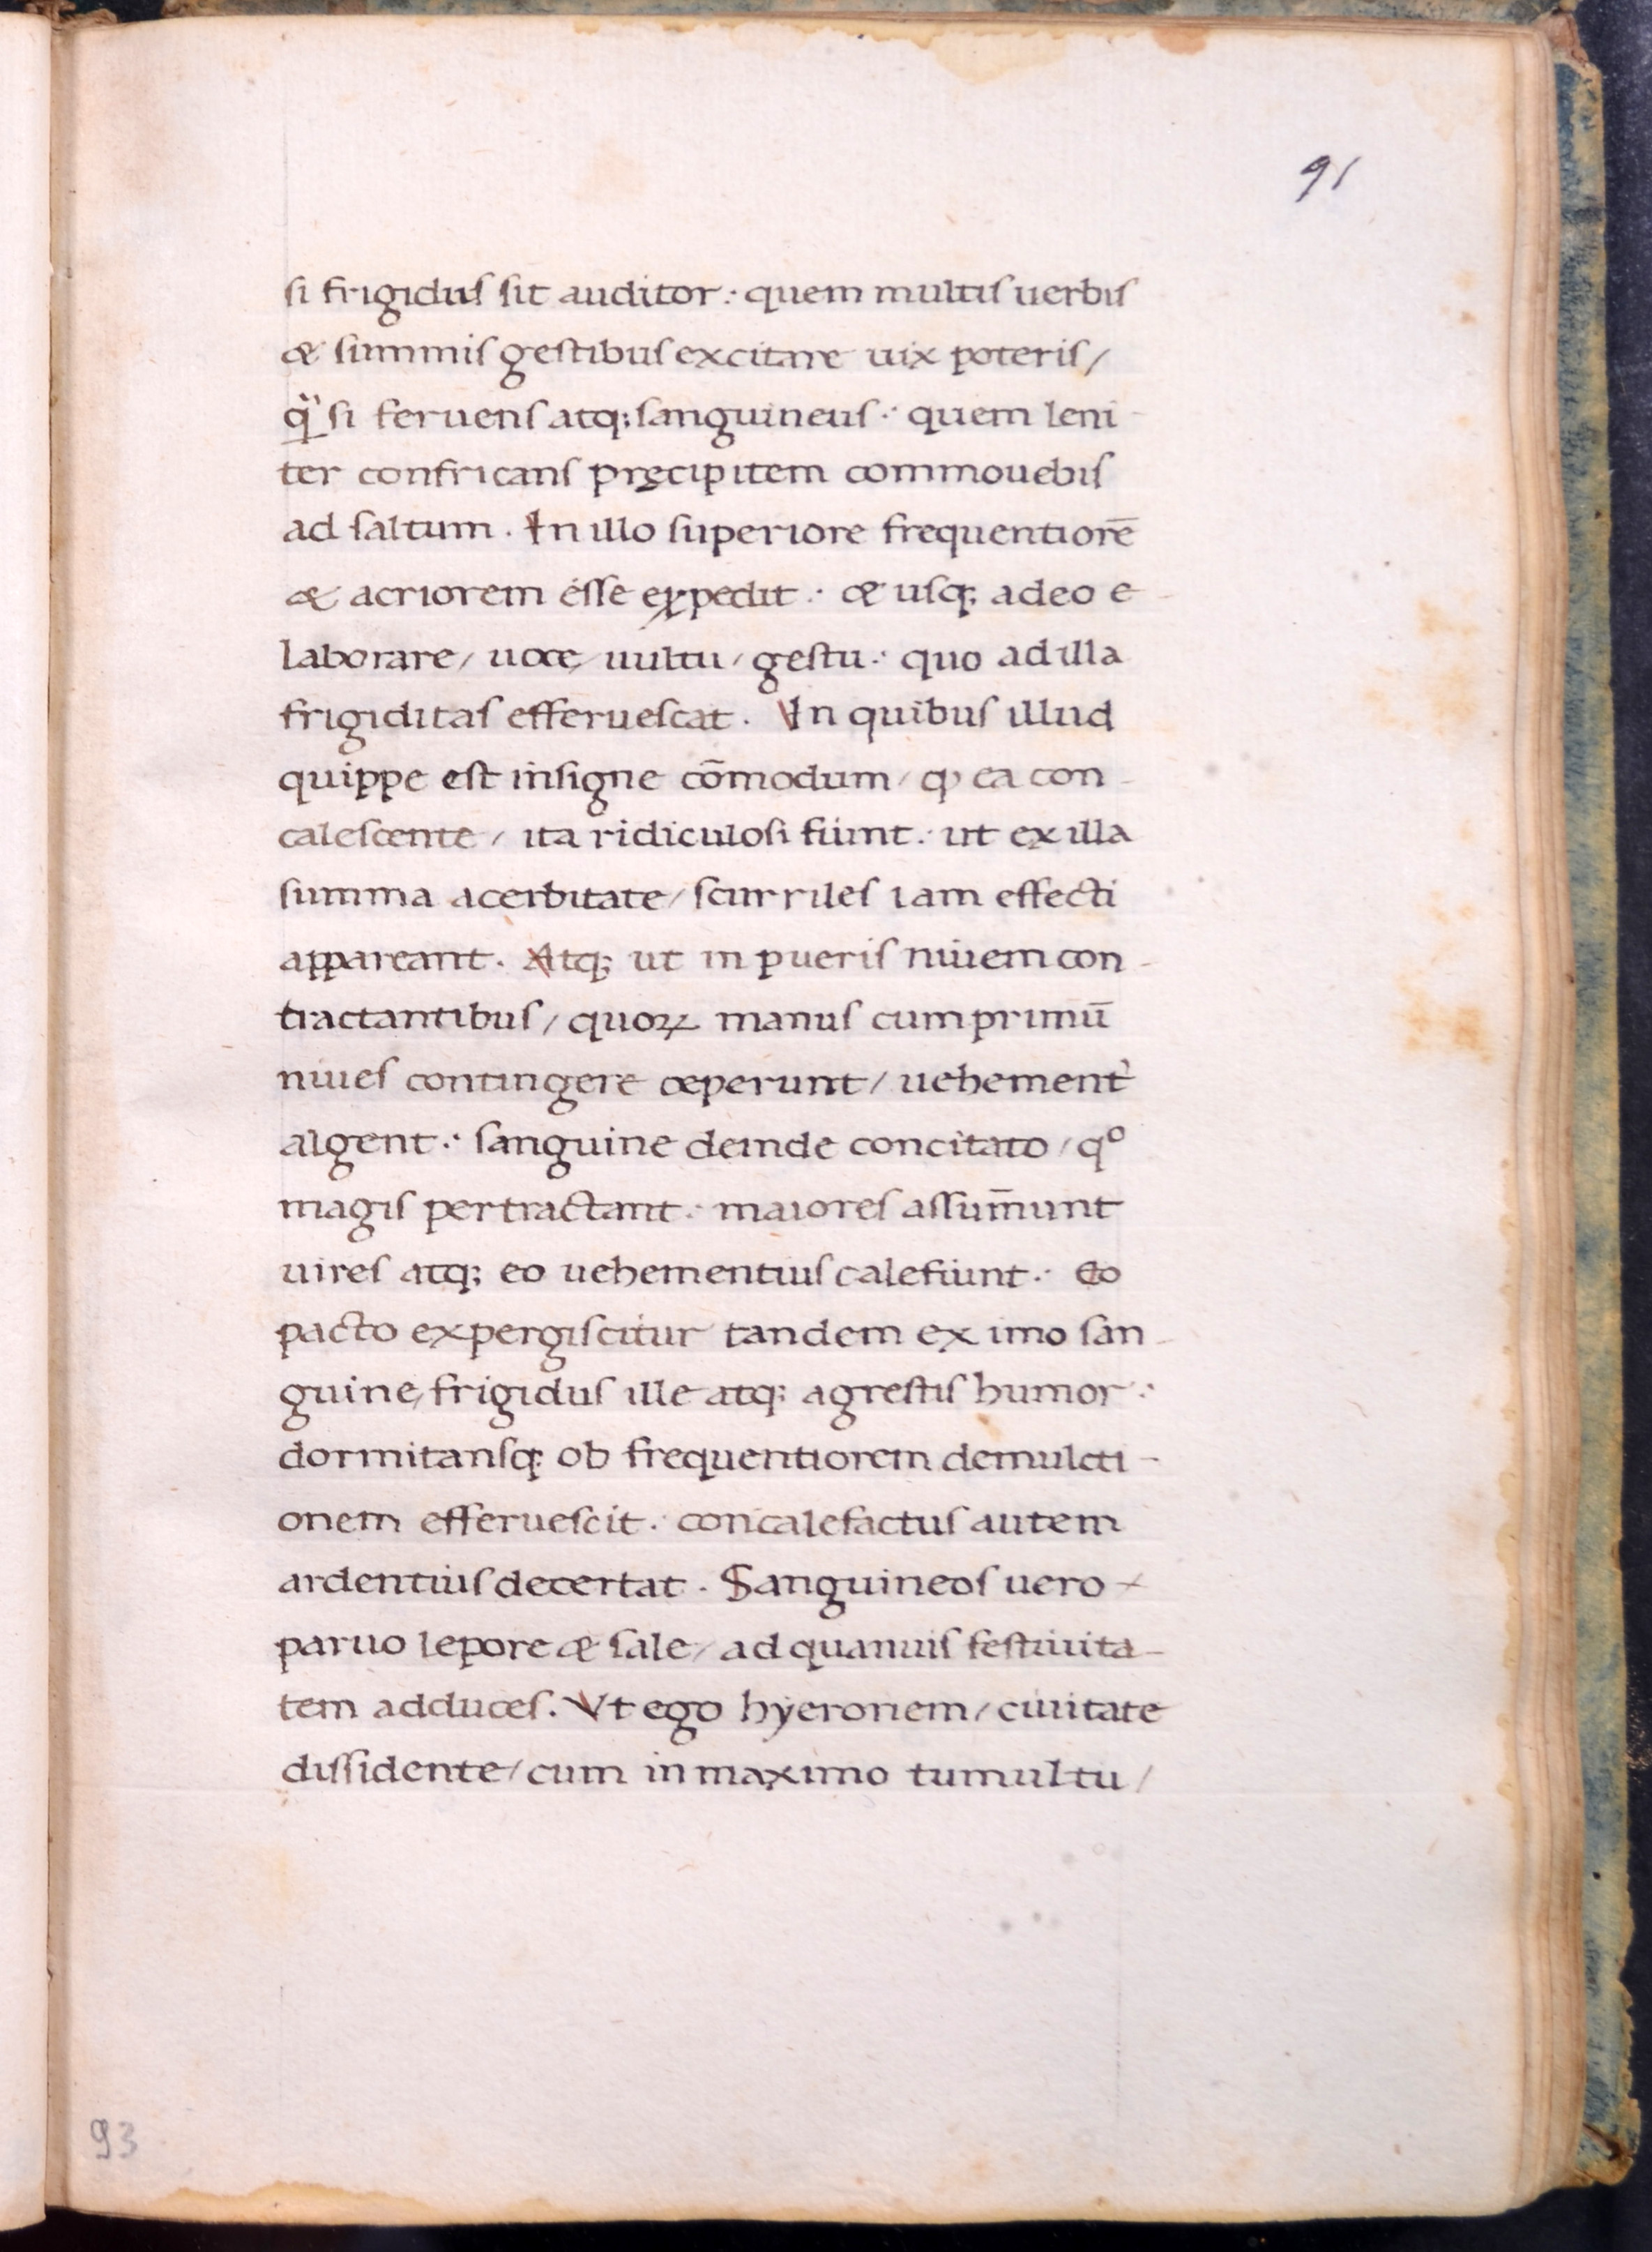 91
si frigidus sit auditor: quem multis uerbis
& summis gestibus excitare uix poteris/
si feruens atq; sanguineus: quem leni-
ter confricans pręcipitem commouebis
ad saltum. In illo superiore frequentiorē
& acriorem ésse expedit: & usq; adeo e-
laborare/ uoce/ uultu/ gestu: quo ad illa
frigiditas efferuescat. In quibus illud
quippe est insigne cōmodum/ ꝙ ea con-
calescente/ ita ridiculosi fiunt: ut ex illa
summa acerbitate/ scurriles iam effecti
appareant. Atq; ut in pueris niuem con-
tractantibus/ quoꝝ manus cum primū
niues contingere ceperunt/ uehement̀
algent: sanguine deinde concitato/ qº
magis pertractant: maiores assum̄unt
uires atq; eo uehementius calefiunt: Eo
pacto expergiscitur tandem ex imo san-
guine/ frigidus ille atq; agrestis humor:
dormitansq; ob frequentiorem demulcti-
onem efferuescit: concalefactus autem
ardentius decertat. Sanguineos uero
paruo lepore & sale/ ad quanuis festiuita-
tem adduces. Vt ego hyeronem/ ciuitate
dissidente/ cum in maximo tumultu/
93